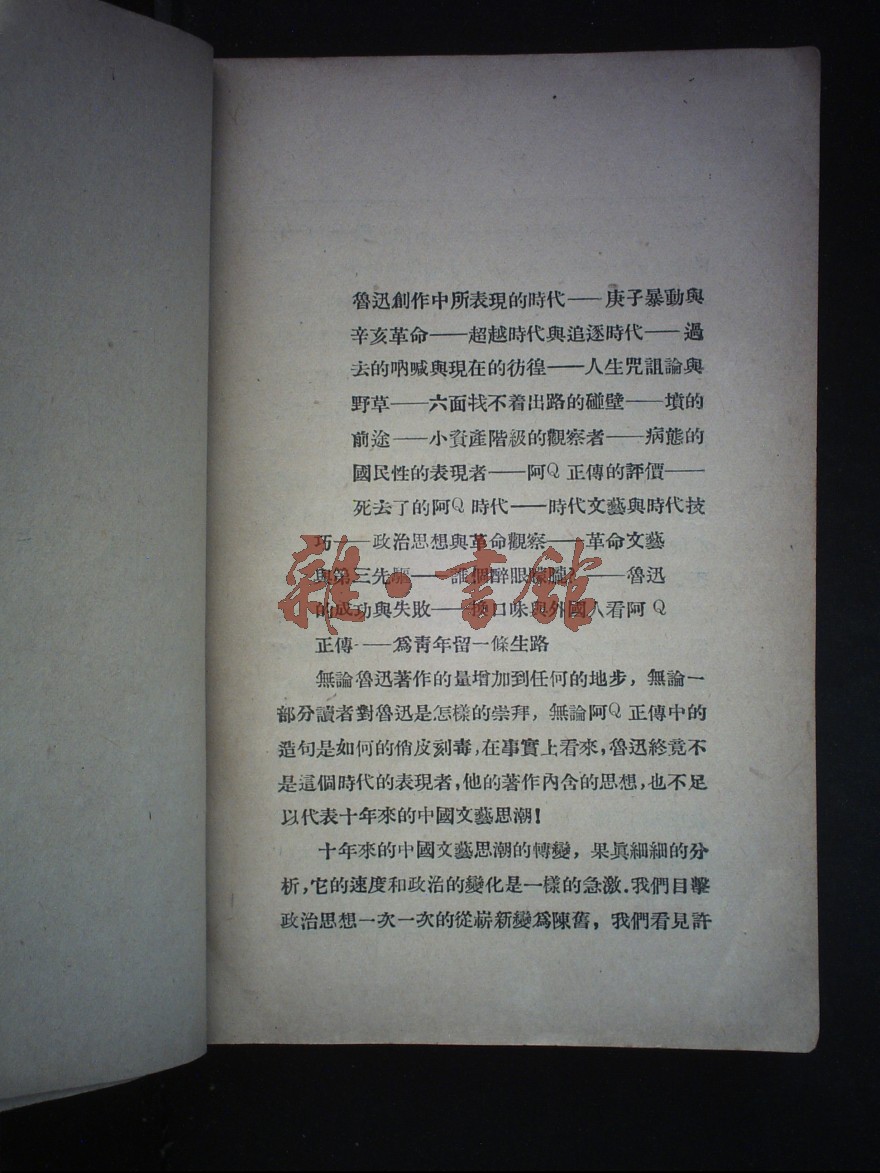 魯迅創作中所表現的時代——庚子暴動與
辛亥革命——超越時代與追逐時代——過
去的吶喊與現在的彷徨——人生咒詛論與
野草——六面找不着出路的碰壁——墳的
前途——小資產階級的觀察者——病態的
國民性的表現者——阿Q 正傳的評價——
死去了的阿Q 時代——時代文藝與時代技
巧——政治思想與革命觀察——革命文藝
與第三先驅——誰個醉眼朦朧——魯迅
的成功與失敗——換口味與外國人看阿 Q
正傳——爲靑年留一條生路
無論魯迅著作的量增加到任何的地步，無論一
部分讀者對魯迅是怎樣的崇拜，無論阿Q 正傳中的
造句是如何的俏皮刻毒，在事實上看來，魯迅終竟不
是這個時代的表現者，他的著作內含的思想，也不足
以代表十年來的中國文藝思潮！
十年來的中國文藝思潮的轉變，果眞細細的分
析，它的速度和政治的變化是一樣的急激．我們目擊
政治思想一次一次的從嶄新變爲陳舊，我們看見許
雜·書館